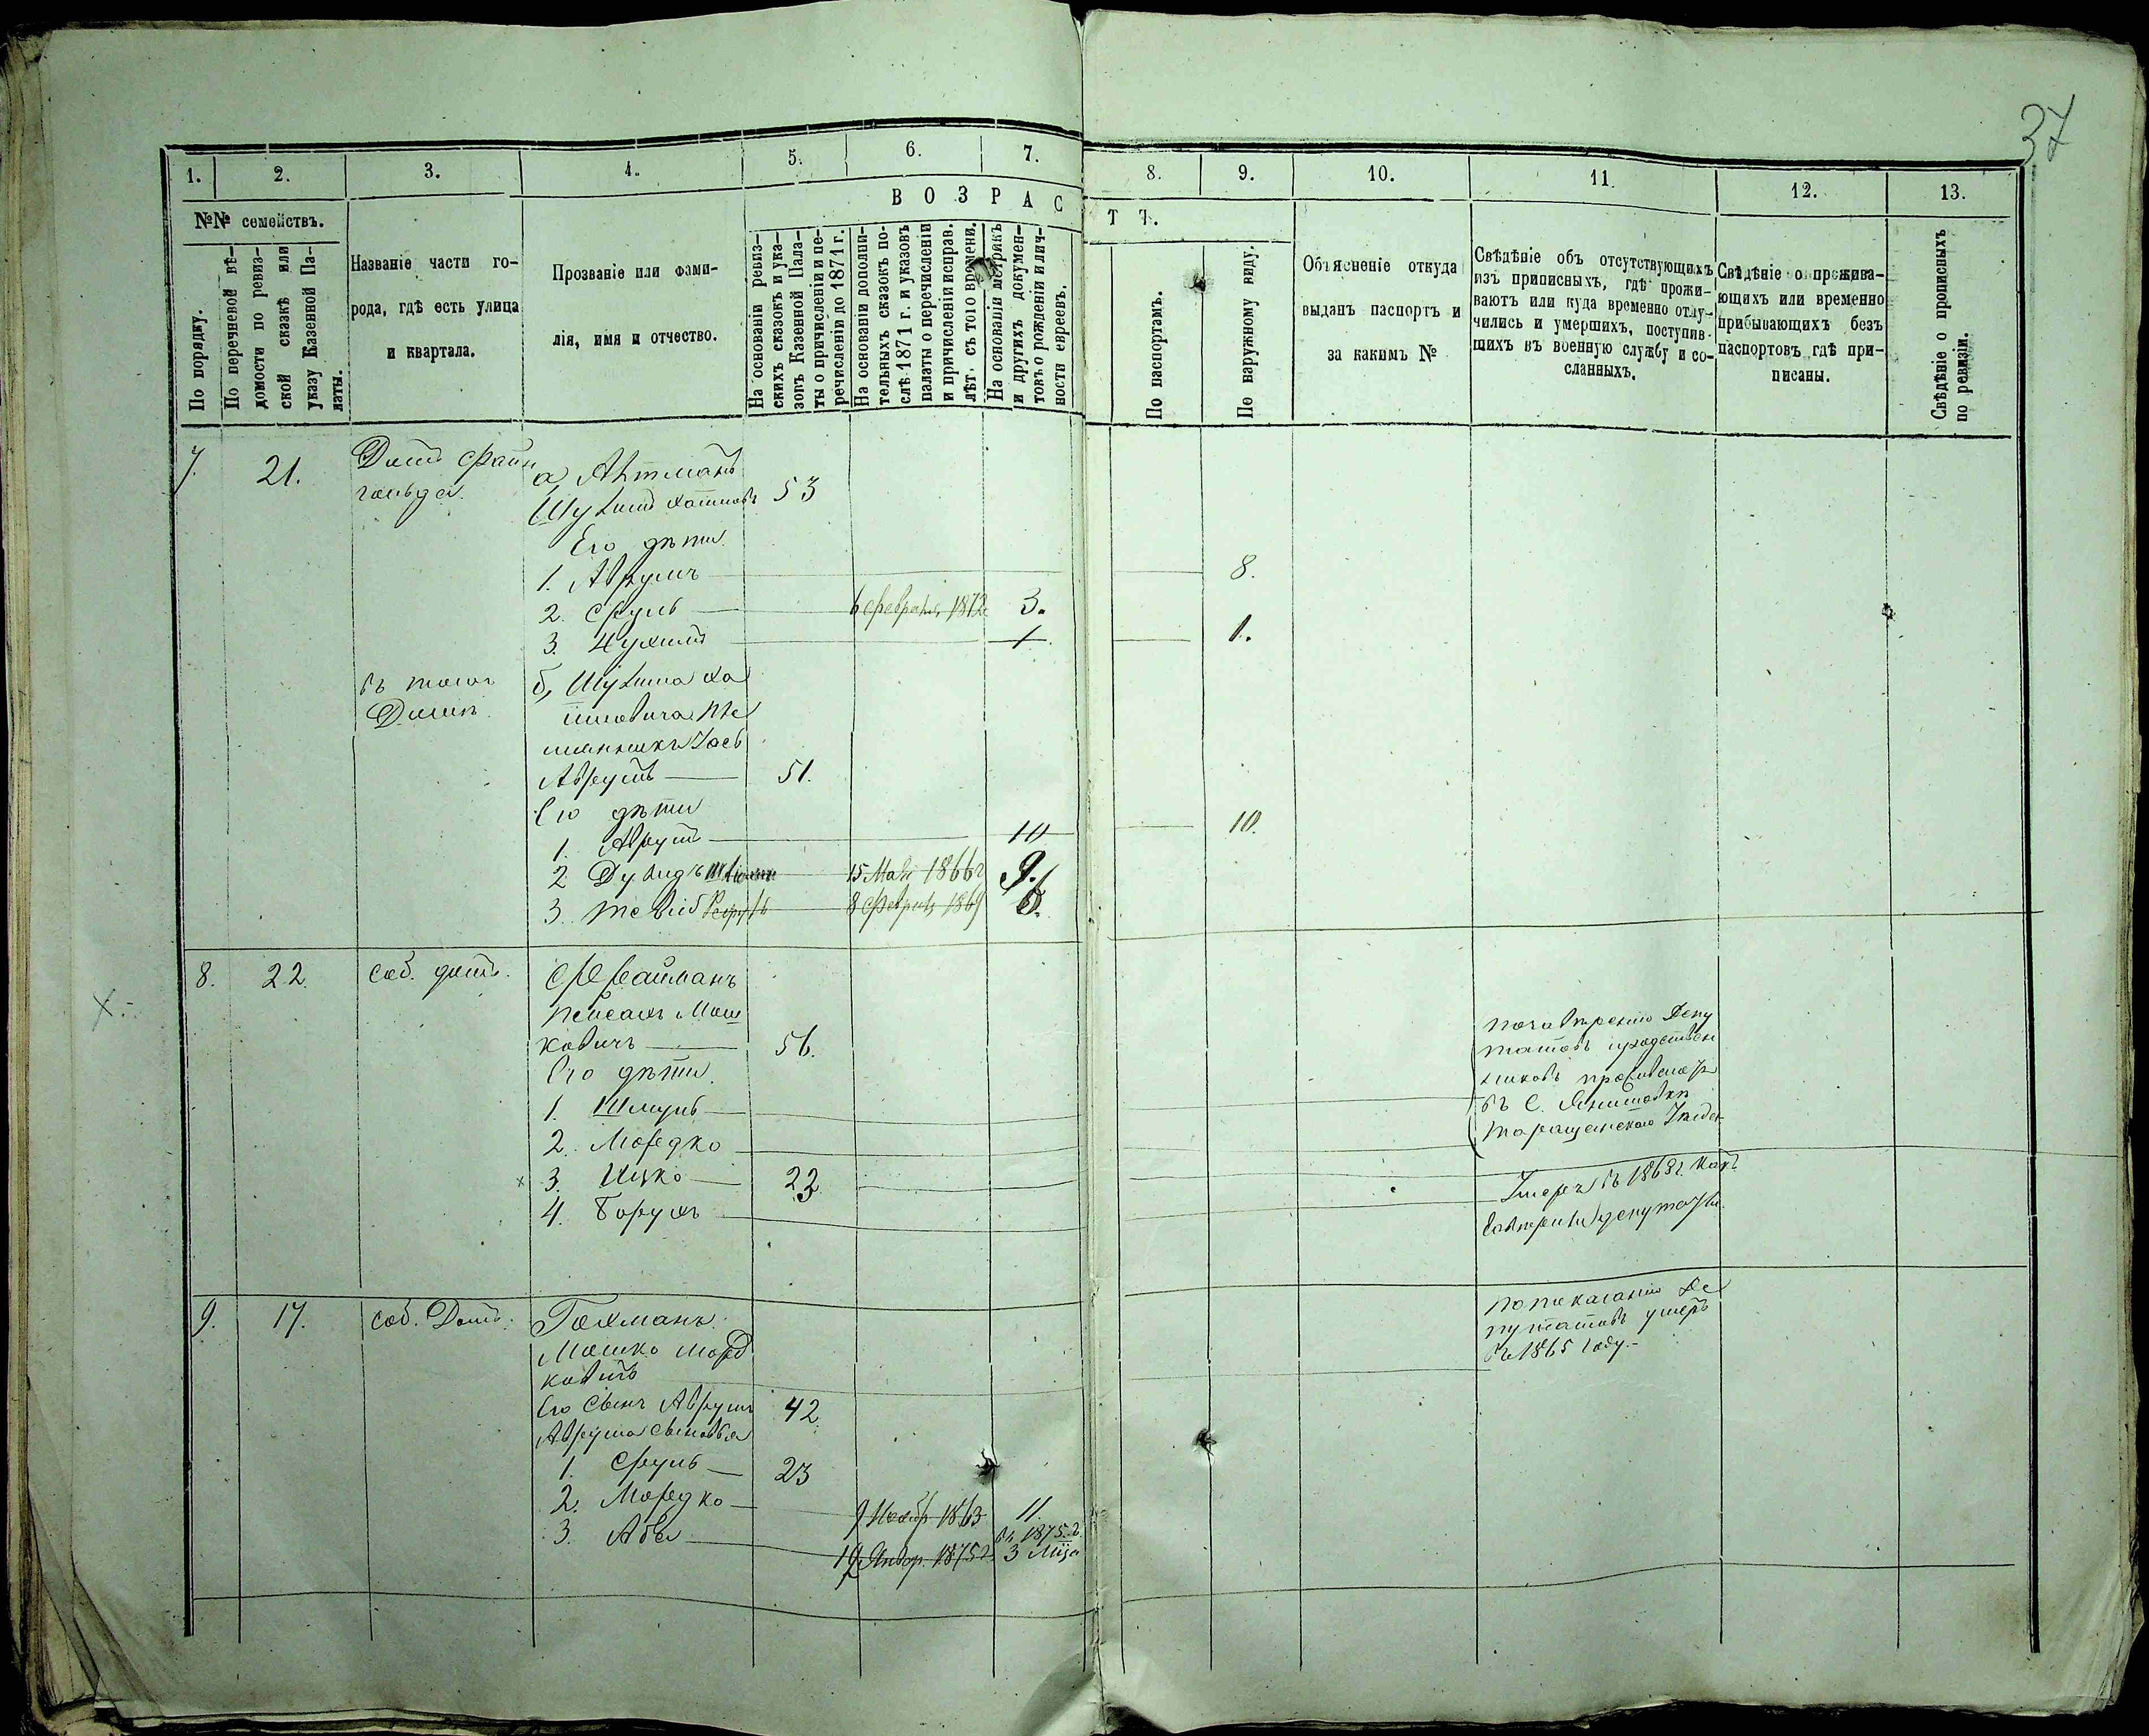 37
1. 2. 3. 4. 5. 6. 7. 8. 9. 10. 11. 12. 13.
№№ семействъ.
По порядку.
По перечневой вѣ-
домости по ревиз-
ской сказкѣ или
указу Казенной Па-
латы.
Названіе части го-
рода, гдѣ есть улица
и квартала.
Прозваніе или фами-
лія, имя и отчество.
ВОЗРАСТЪ.
На основаніи ревиз-
скихъ сказокъ и ука-
зовъ Казенной Пала-
ты о причисленіи и пе-
речисленіи до 1871 г.
На основаніи дополни-
тельныхъ сказокъ по-
слѣ 1871 г. и указовъ
палаты о перечисленіи
и причисленіи исправ.
лѣт. съ того времени.
На основаніи метрикъ
и другихъ докумен-
товъ о рожденіи и лич-
ности евреевъ.
По паспортамъ.
По наружному виду.
Объясненіе откуда
выданъ паспортъ и
за какимъ №
Свѣдѣніе объ отсутствующихъ
изъ приписныхъ, гдѣ прожи-
ваютъ или куда временно отлу-
чились и умершихъ, поступив-
шихъ въ военную службу и со-
сланныхъ.
Свѣдѣніе о прожива-
ющихъ или временно
прибывающихъ безъ
паспортовъ гдѣ при-
писаны.
Свѣдѣніе о прописныхъ
по ревизіи.
7. 21. Домъ Файн
гольда.
а,
53
Его дѣти
1. Аврумъ 8.
2. Сруль 6 Февраля 1872 3.
3. Нухимъ 1 1.
въ томъ
Домѣ
б, Шулима Хаи
имовича пле
мянникъ Іось
Аврумъ 51.
Его дѣти
1. Аврумъ 10 10.
2 Дувидъ 15 Мая 1866 г 9.
3. 8 Февраля 1869 6.
8. 22. соб. домъ. Фрайманъ
Пейсахъ Мош
ковичъ 56.
Его дѣти.
1. Шмуль
2. Мордко
3. Ицко 22
4. Борухъ
Депу
татовъ
въ С.
Таращанскаго Уѣзда
Умеръ въ 1868 г. какъ
депутаты
9. 17. соб. Домъ. Гохманъ
Мошко Морд
ковичъ
Его сынъ Аврумъ 42
Аврума сыновья
1. Сруль 23
2. Мордко 9 Ноябр 1863 11.
3. Аба 19 Январ. 1875 г въ 1875 г.
3 Мѣся
по показанію Де
путатовъ умеръ
въ 1865 году.